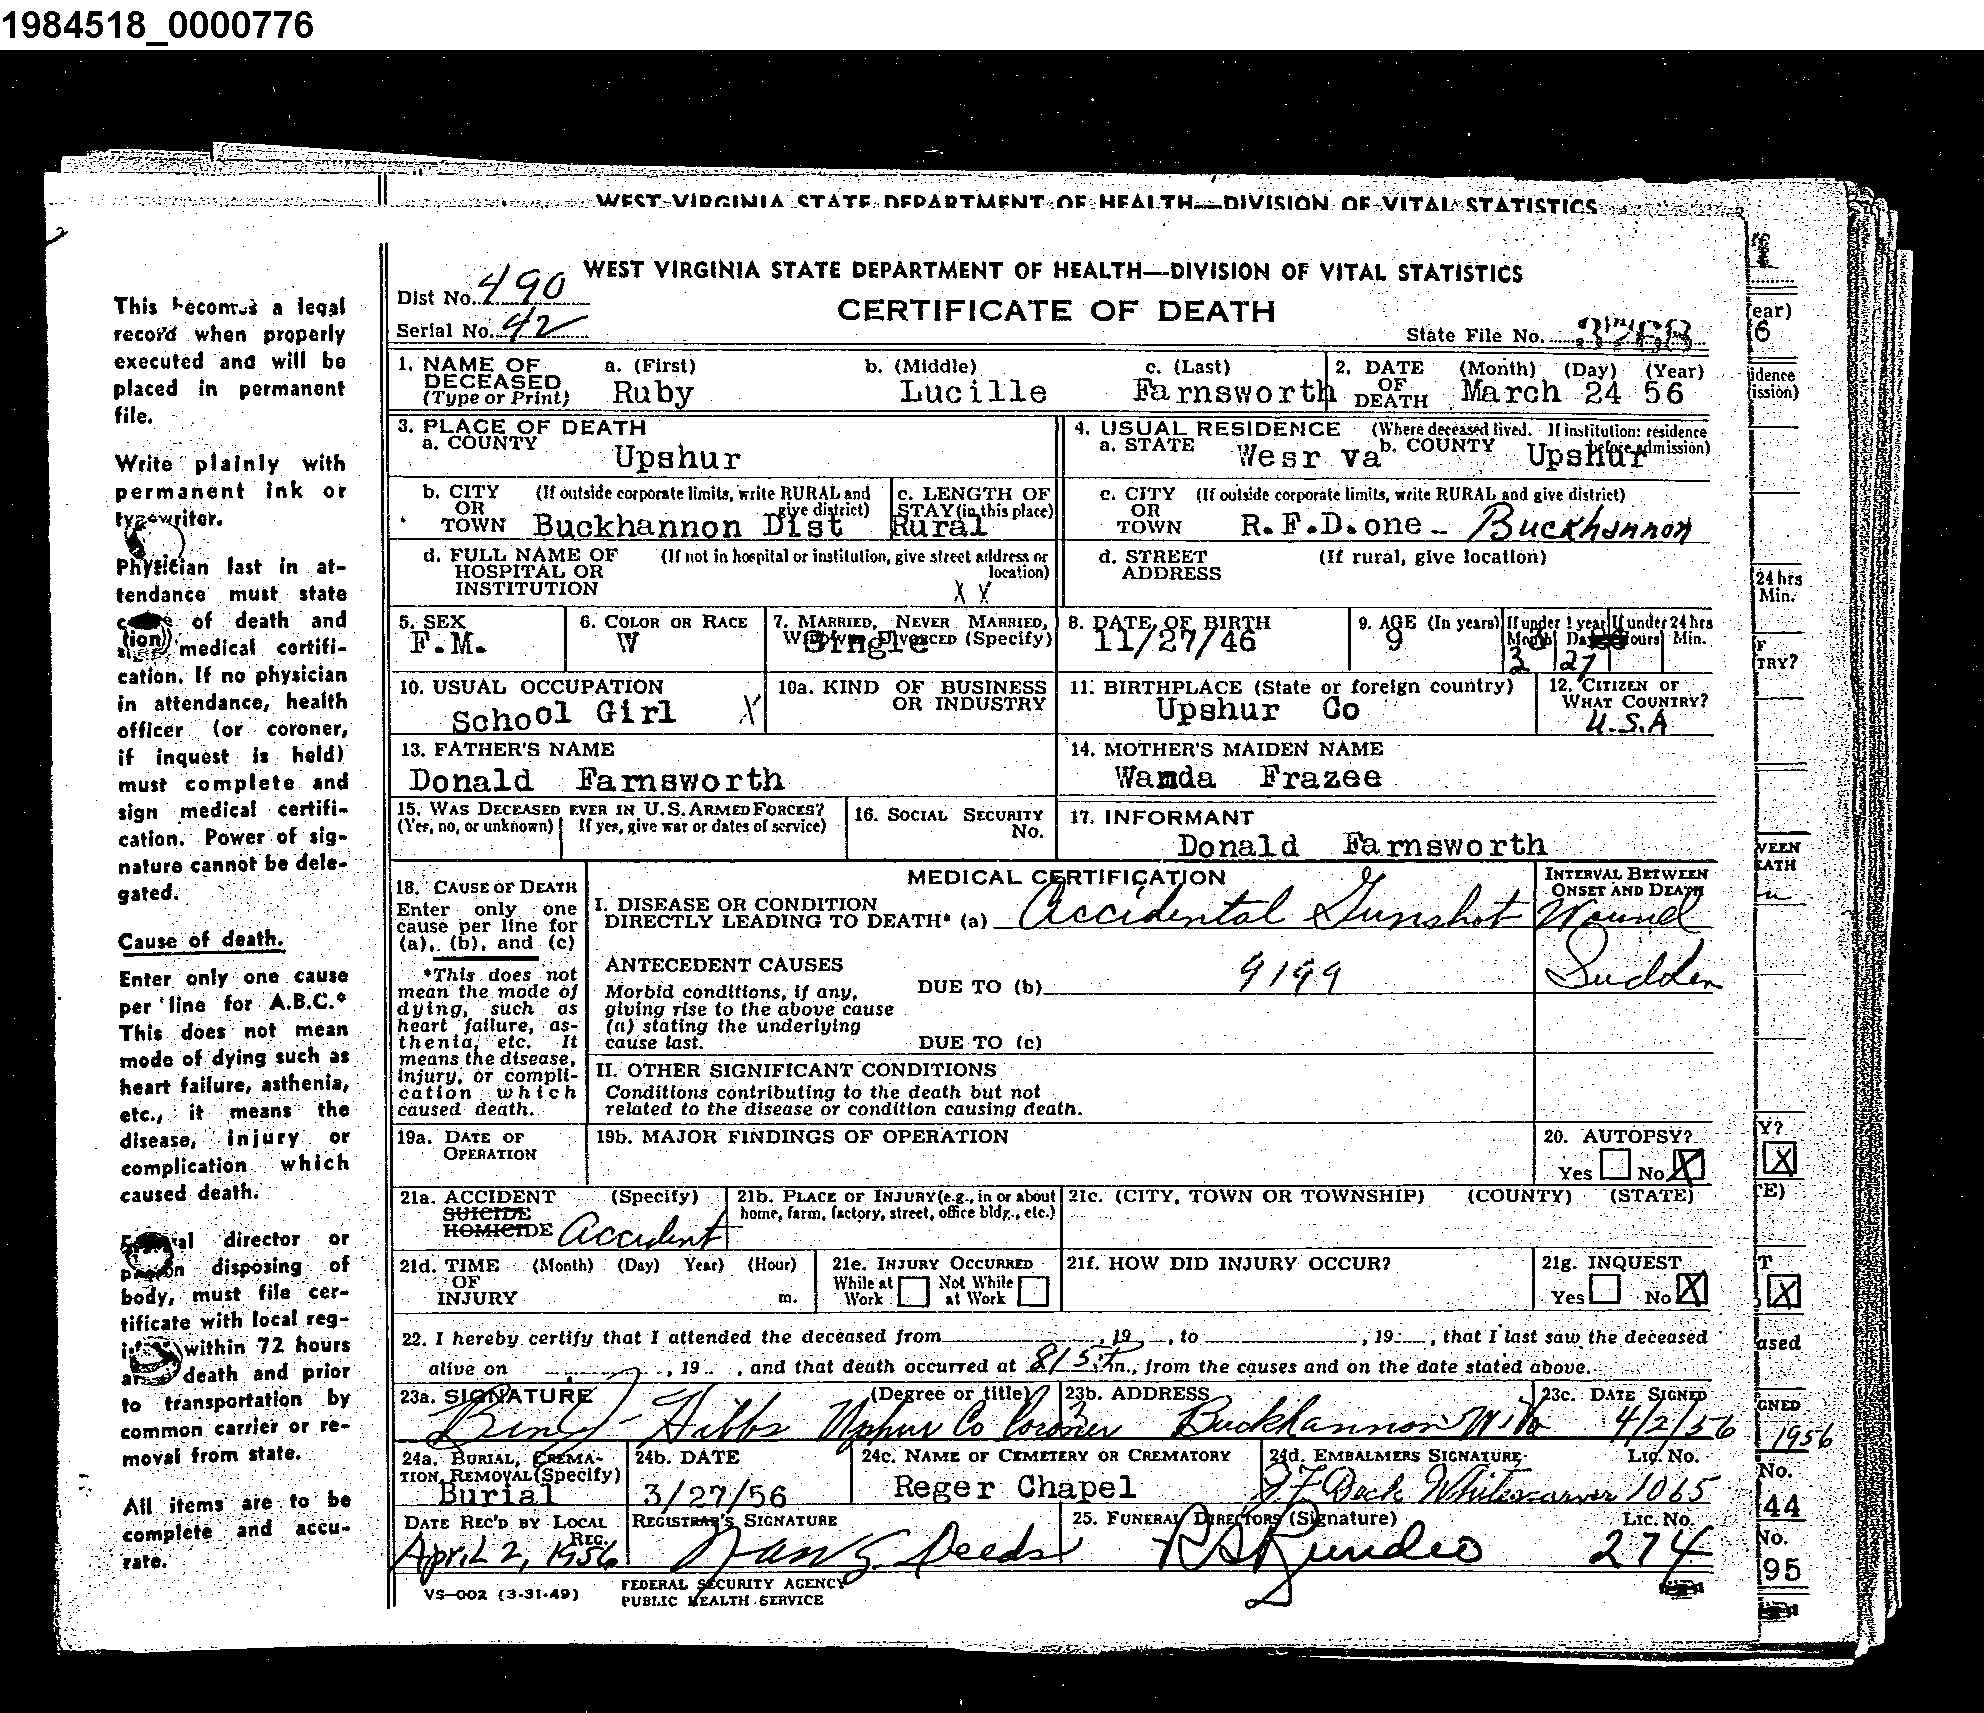 1984518_0000776
WEST VIRGINIA STATE DEPARTMENT OF HEALTH—DIVISION OF VITAL STATISTICS
This becomes a legal
record when properly
executed and will be
placed in permanent
file.
Write plainly with
permanent ink or
typewriter.
Physician last in at-
tendance must state
of death and
medical certifi-
cation. If no physician
in attendance, health
officer (or coroner,
if inquest is held)
must complete and
sign medical certifi-
cation. Power of sig-
nature cannot be dele-
gated.
Cause of death.
Enter only one cause
per line for A.B.C.*
This does not mean
mode of dying such as
heart failure, asthenia,
etc., it means the
disease, injury or
complication which
caused death.
director or
disposing of
body, must file cer-
tificate with local reg-
within 72 hours
death and prior
to transportation by
common carrier or re-
moval from state.
All items are to be
complete and accu-
rate.
WEST VIRGINIA STATE DEPARTMENT OF HEALTH—DIVISION OF VITAL STATISTICS
Dist No. 490
CERTIFICATE OF DEATH
Serial No. 42
State File No.
1. NAME OF DECEASED (Type or Print) a. (First) Ruby b. (Middle) Lucille c. (Last) Farnsworth
2. DATE OF DEATH (Month) (Day) (Year) March 24 56
3. PLACE OF DEATH
a. COUNTY Upshur
4. USUAL RESIDENCE (Where deceased lived. If institution: residence before admission)
a. STATE Wesr va b. COUNTY Upshur
b. CITY OR TOWN (If outside corporate limits, write RURAL and give district) Buckhannon Dist
c. LENGTH OF STAY (in this place) Rural
c. CITY OR TOWN (If outside corporate limits, write RURAL and give district) R.F.D.one - Buckhannon
d. FULL NAME OF HOSPITAL OR INSTITUTION (If not in hospital or institution, give street address or location) X X
d. STREET ADDRESS (If rural, give location)
5. SEX F.M.
6. COLOR OR RACE W
7. MARRIED, NEVER MARRIED, WIDOWED, DIVORCED (Specify) Single
8. DATE OF BIRTH 11/27/46
9. AGE (In years) 9 If under 1 year Months 3 Days 27 If under 24 hrs Hours Min.
10. USUAL OCCUPATION School Girl X
10a. KIND OF BUSINESS OR INDUSTRY
11. BIRTHPLACE (State or foreign country) Upshur Co
12. CITIZEN OF WHAT COUNTRY? U.S.A
13. FATHER'S NAME Donald Farnsworth
14. MOTHER'S MAIDEN NAME Wanda Frazee
15. WAS DECEASED EVER IN U.S. ARMED FORCES?
(Yes, no, or unknown) If yes, give war or dates of service)
16. SOCIAL SECURITY No.
17. INFORMANT Donald Farnsworth
18. CAUSE OF DEATH
Enter only one
cause per line for
(a), (b), and (c)
*This does not
mean the mode of
dying, such as
heart failure, as-
thenia, etc. It
means the disease,
injury, or compli-
cation which
caused death.
MEDICAL CERTIFICATION
INTERVAL BETWEEN ONSET AND DEATH
I. DISEASE OR CONDITION
DIRECTLY LEADING TO DEATH* (a) Accidental Gunshot Wound
Sudden
ANTECEDENT CAUSES
Morbid conditions, if any,
giving rise to the above cause
(a) stating the underlying
cause last.
DUE TO (b) 9199
DUE TO (c)
II. OTHER SIGNIFICANT CONDITIONS
Conditions contributing to the death but not
related to the disease or condition causing death.
19a. DATE OF OPERATION
19b. MAJOR FINDINGS OF OPERATION
20. AUTOPSY?
Yes No X
21a. ACCIDENT SUICIDE HOMICIDE (Specify) Accident
21b. PLACE OF INJURY (e.g., in or about home, farm, factory, street, office bldg., etc.)
21c. (CITY, TOWN OR TOWNSHIP) (COUNTY) (STATE)
21d. TIME OF INJURY (Month) (Day) Year) (Hour) m.
21e. INJURY OCCURRED
While at Work Not While at Work
21f. HOW DID INJURY OCCUR?
21g. INQUEST
Yes No X
22. I hereby certify that I attended the deceased from , 19 , to , 19 , that I last saw the deceased
alive on , 19 , and that death occurred at 815 P m., from the causes and on the date stated above.
23a. SIGNATURE (Degree or title) Benj Hibbs Upshur Co Coroner
23b. ADDRESS Buckhannon W Va
23c. DATE SIGNED 4/2/56
24a. BURIAL, CREMA-
TION, REMOVAL (Specify) Burial
24b. DATE 3/27/56
24c. NAME OF CEMETERY OR CREMATORY Reger Chapel
24d. EMBALMERS SIGNATURE Lic. No. Whitescarver 1065
DATE REC'D BY LOCAL REG. April 2, 1956
REGISTRAR'S SIGNATURE Deeds
25. FUNERAL DIRECTORS (Signature) Lic. No. 274
VS—002 (3-31-49)
FEDERAL SECURITY AGENCY
PUBLIC HEALTH SERVICE
ear)
6
idence
ission)
24 hrs
Min.
TRY?
VEEN
EATH
Y?
X
TE)
T
X
ased
GNED
1956
No.
44
No.
95